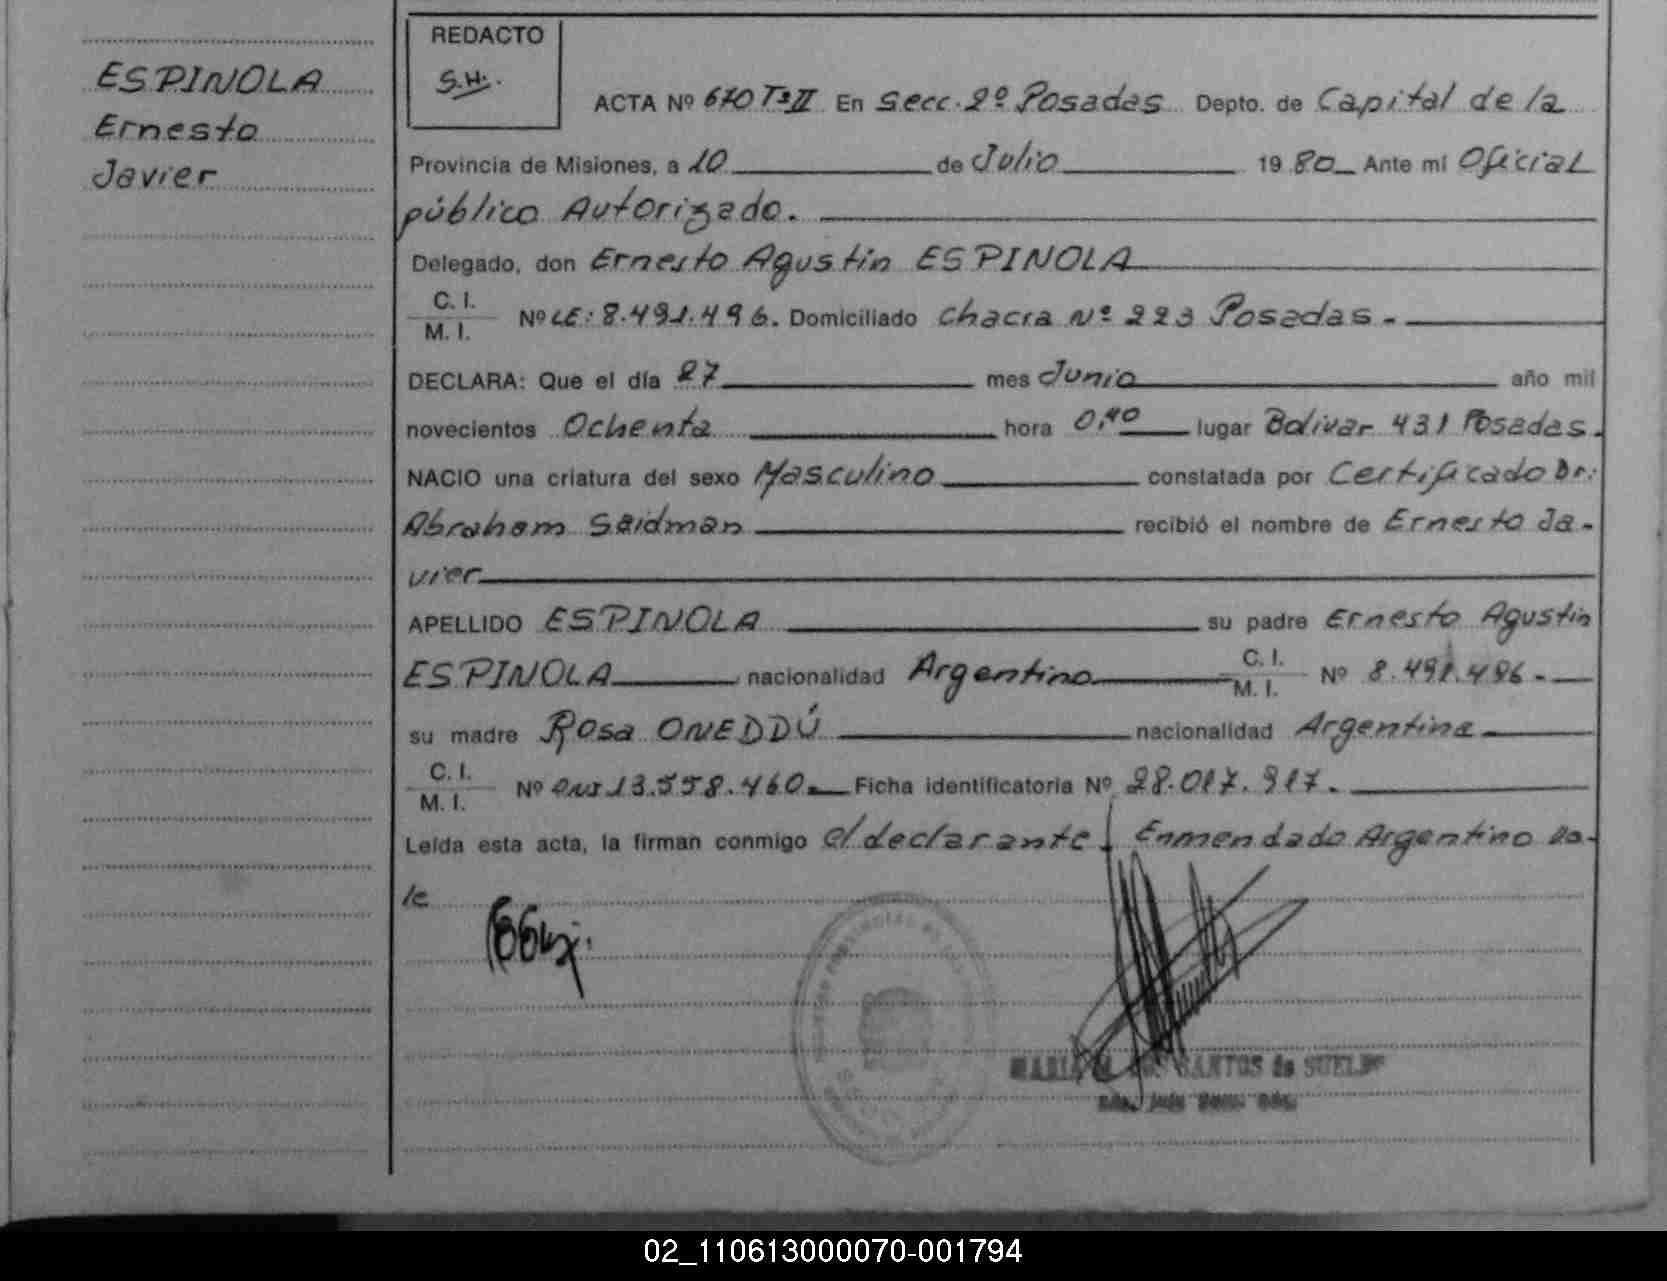 ESPINOLA
Ernesto
Javier
REDACTO
S.H.
ACTA Nº 670 Tº II En Secc. 2º Posadas Depto. de Capital de la
Provincia de Misiones, a 10 de Julio 19 80 Ante mi Oficial
público Autorizado.
Delegado, don Ernesto Agustin ESPINOLA
C. I.
M. I. Nº LE: 8.491.496. Domiciliado Chacra Nº 223 Posadas.-
DECLARA: Que el día 27 mes Junio año mil
novecientos Ochenta hora 0,40 lugar Bolivar 431 Posadas.
NACIO una criatura del sexo Masculino constatada por Certificado Dr:
Abraham Saidman recibió el nombre de Ernesto Ja-
vier
APELLIDO ESPINOLA su padre Ernesto Agustin
ESPINOLA nacionalidad Argentino C. I.
M. I. Nº 8.491.496.-
su madre Rosa ONEDDÚ nacionalidad Argentina
C. I.
M. I. Nº 13.558.460. Ficha identificatoria Nº 28.017.917.
Leída esta acta, la firman conmigo el declarante. Enmendado Argentino Va-
le
MARIA SANTOS de SUELDO
02_110613000070-001794